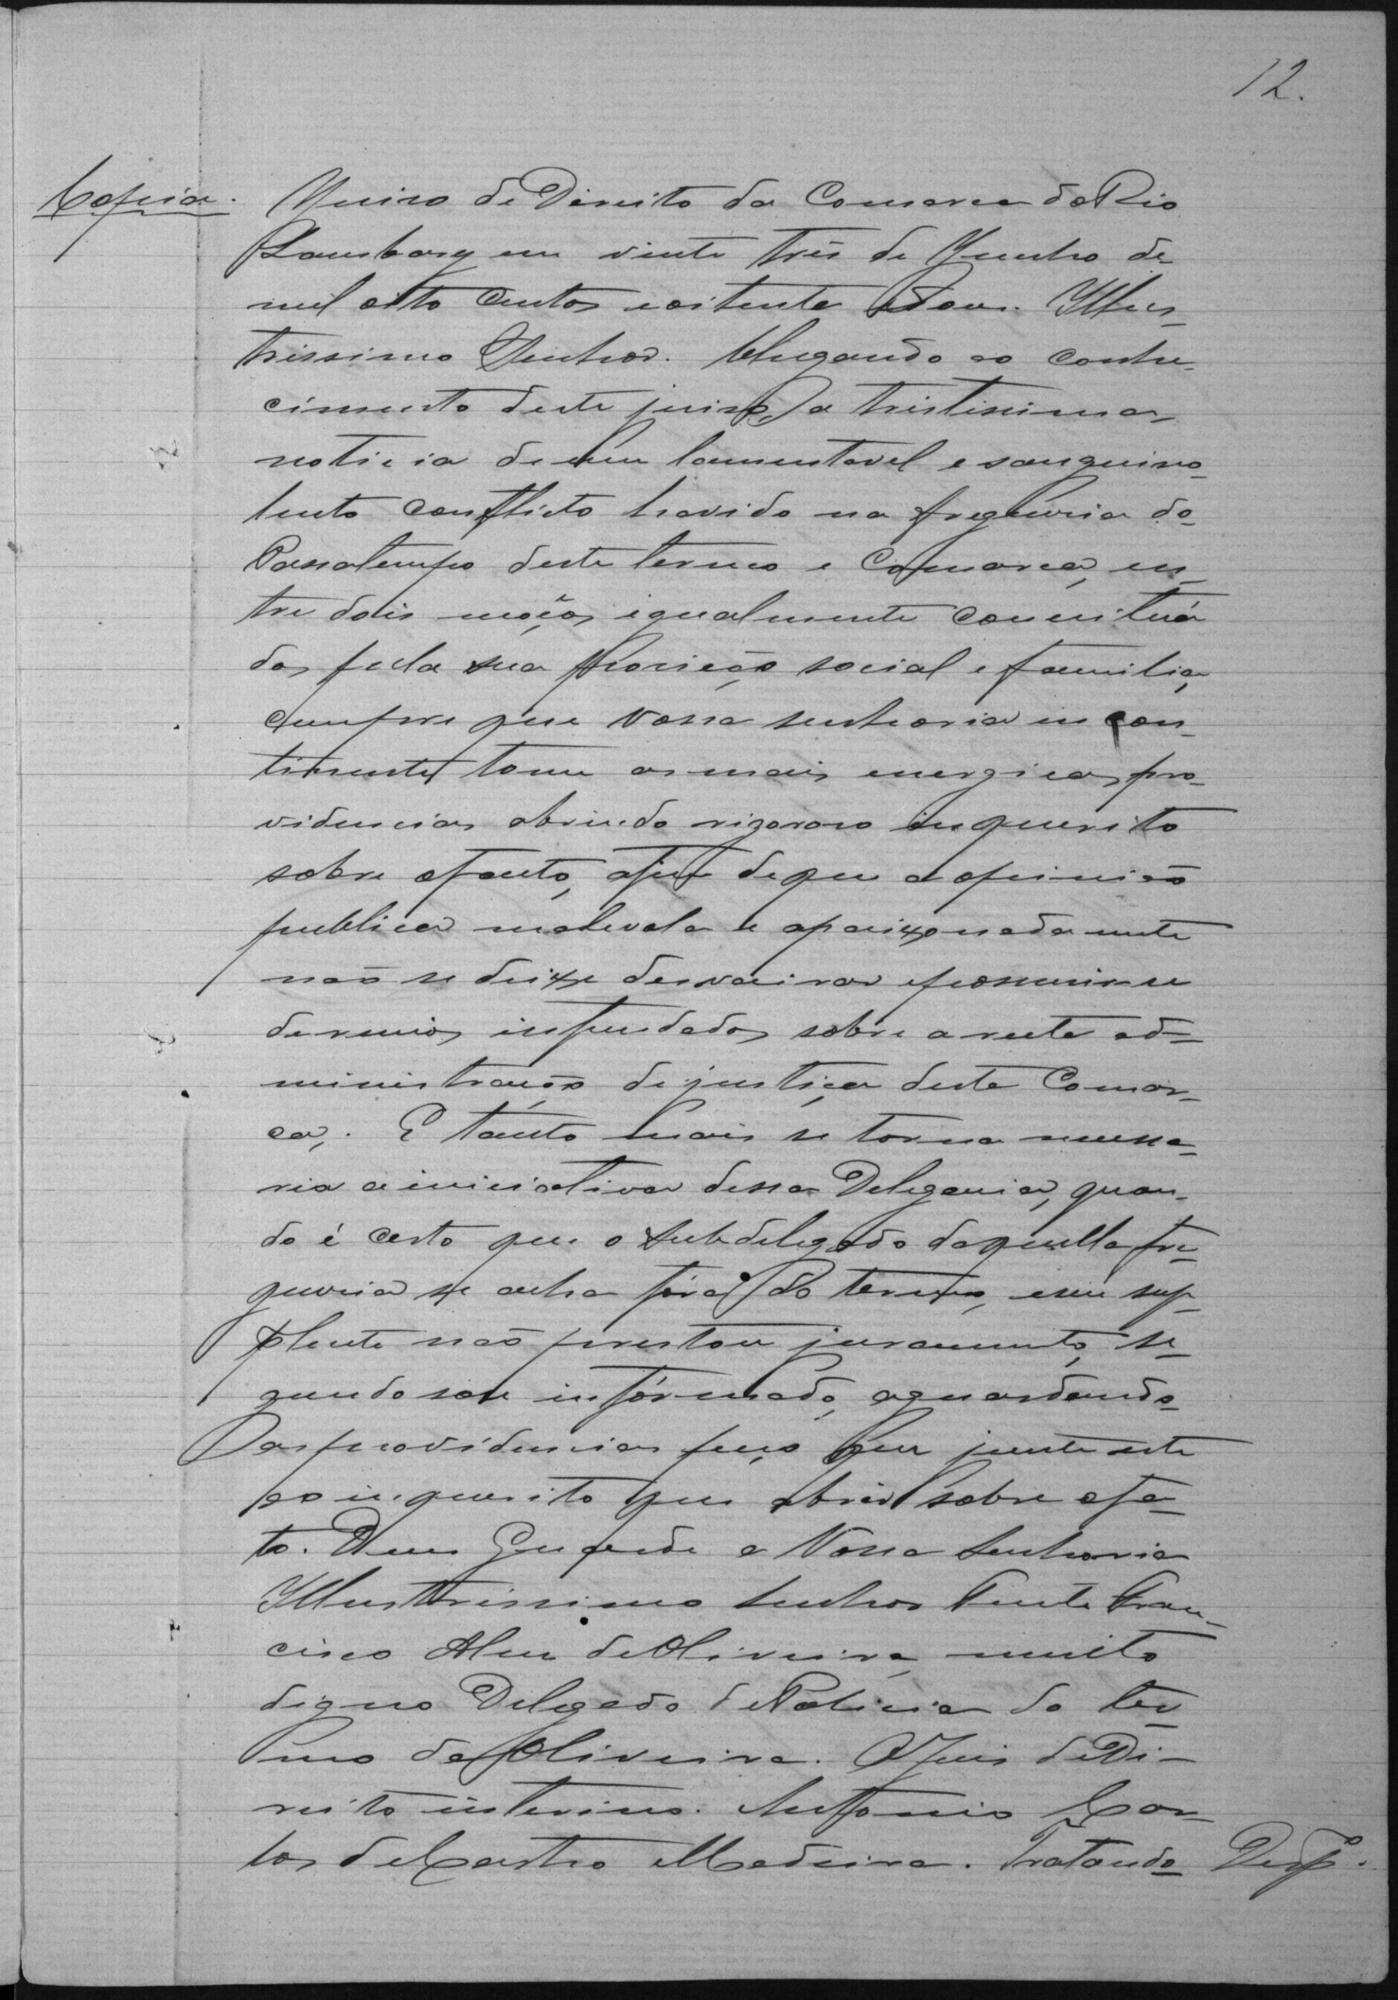 12.
Copia. Juizo de Direito da Comarca do Rio
Lambary em vinte tres de Junho de
mil oito centos e oitenta e dous. Illus-
trissimo Senhor. Chegando ao conhe-
cimento deste juizo, a tristissima
noticia de um lamentavel e sanguino-
lento conflicto havido na freguesia do
Passatempo deste termo e Comarca, en-
tre dois moços igualmente conceitua-
dos pela sua posição social e familia,
cumpre que Vossa senhoria in con-
tinente tome as mais energicas pro-
videncias abrindo rigoroso inquerito
sobre o facto, afim de que a opinião
publica malevola e apaixonadamente
não se deixe desvairar e possuir-se
de receios infundados sobre a recta ad-
ministração de justiça desta Comar-
ca. E tanto mais se torna necessa-
ria a iniciativa dessa Delegacia, quan-
do é certo que o subdelegado daquella fre-
guesia se acha fóra do termo, e seu sup-
plente não prestou juramento, se-
gundo sou informado, aguardando
as providencias peço que junte este
ao inquerito que abrir sobre o fa-
to. Deus Guarde a Vossa Senhoria
Illustrissimo Senhor Tenente Fran-
cisco Alves de Oliveira, muito
digno Delegado de Policia do ter-
mo de Oliveira. O Juis de Di-
reito interino. Antonio Car-
los de Castro Madeira. Tratando Desp.